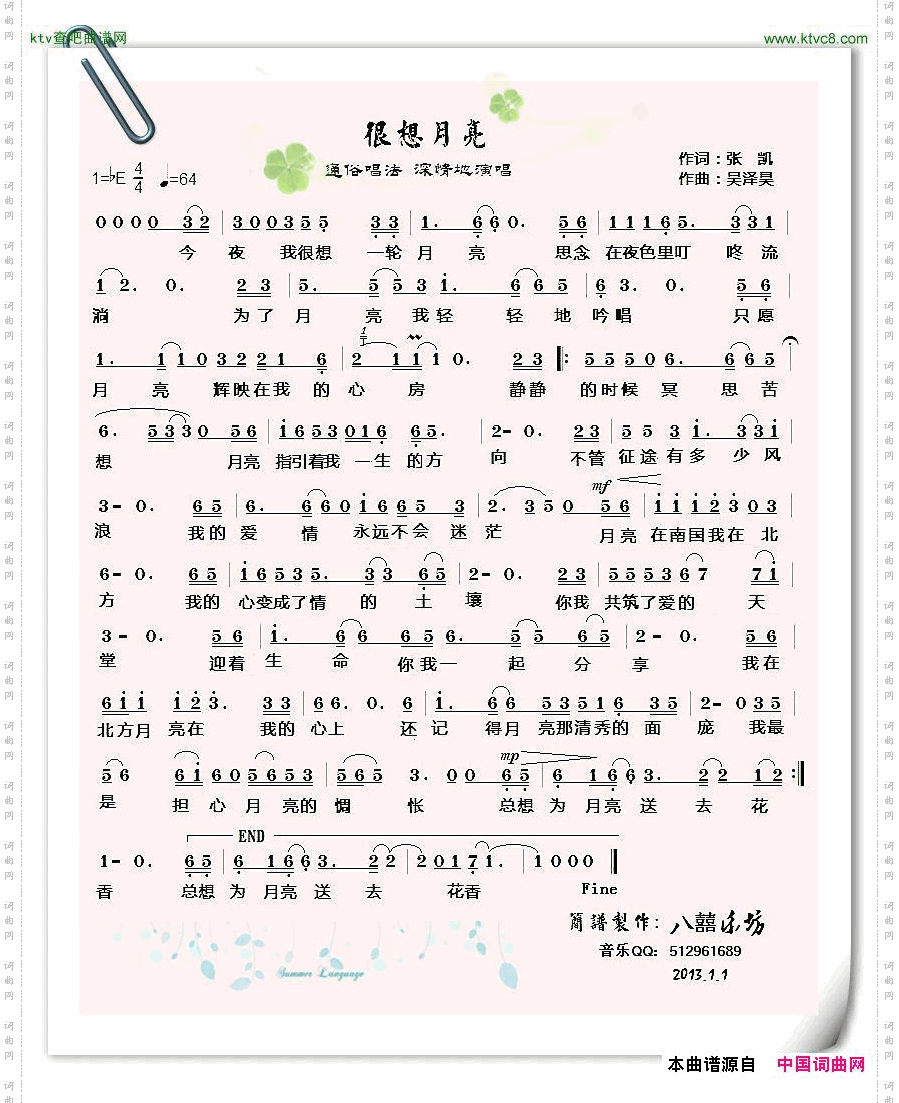 ktv查吧曲谱网
www.ktvc8.com
很想月亮
通俗唱法 深情地演唱
作词：张 凯
作曲：吴泽昊
1=♭E 4/4 ♩=64
0 0 0 0 3 2 | 3 0 0 3 5 5 3 3 | 1. 6 6 0. 5 6 | 1 1 1 6 5. 3 3 1 |
今 夜 我很想 一轮 月 亮 思念 在夜色里叮 咚 流
1 2. 0. 2 3 | 5. 5 5 3 i. 6 6 5 | 6 3. 0. 5 6 |
淌 为了 月 亮 我轻 轻 地 吟唱 只愿
1. 1 1 0 3 2 2 1 6 | 2 1 1 1 0. 2 3 |: 5 5 5 0 6. 6 6 5 |
月 亮 辉映在我 的 心 房 静静 的时候 冥 思 苦
6. 5 3 3 0 5 6 | i 6 5 3 0 1 6 6 5. | 2- 0. 2 3 | 5 5 3 i. 3 3 i |
想 月亮 指引着我 一生 的方 向 不管 征途有多 少风
mf
3- 0. 6 5 | 6. 6 6 0 i 6 6 5 3 | 2. 3 5 0 5 6 | i i i 2 3 0 3 |
浪 我的 爱 情 永远不会 迷 茫 月亮 在南国我在 北
6- 0. 6 5 | i 6 5 3 5. 3 3 6 5 | 2- 0. 2 3 | 5 5 5 3 6 7 7 i |
方 我的 心变成了情 的 土 壤 你我 共筑了爱的 天
3- 0. 5 6 | i. 6 6 6 5 6. 5 5 6 5 | 2- 0. 5 6 |
堂 迎着 生 命 你我一 起 分 享 我在
6 i i i 2 3. 3 3 | 6 6. 0. 6 | i. 6 6 5 3 5 1 6 3 5 | 2- 0 3 5 |
北方月 亮在 我的 心上 还 记 得月 亮那清秀的 面 庞 我最
mp
5 6 6 i 6 0 5 6 5 3 | 5 6 5 3. 0 0 6 5 | 6 1 6 6 3. 2 2 1 2 :|
是 担 心 月 亮的 惆 怅 总想 为 月亮 送 去 花
END
1- 0. 6 5 | 6 1 6 6 3. 2 2 | 2 0 1 7 1. | 1 0 0 0 ‖
香 总想 为 月亮 送 去 花香 Fine
簡譜製作：八囍乐坊
音乐QQ：512961689
2013.1.1
Summer Language
本曲谱源自 中国词曲网